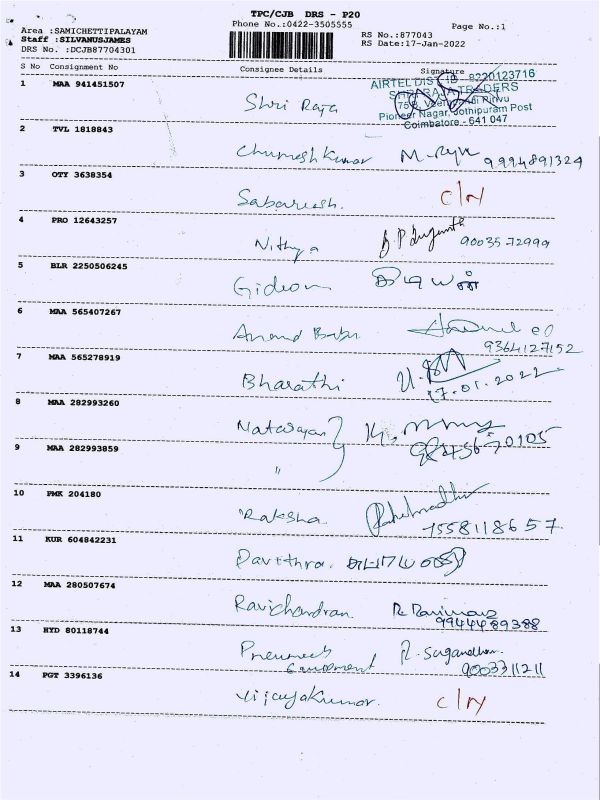 TPC/CJB DRS - P20
Phone No.:0422-3505555
Page No.:1
Area :SAMICHETTIPALAYAM
Staff :SILVANUSJAMES
DRS No. :DCJB87704301
RS No.:877043
RS Date:17-Jan-2022
S No Consignment No Consignee Details Signature
1 MAA 941451507 Shri Raja
AIRTEL DIST 8220123716
SHRI RAJA TRADERS
Pioneer Nagar, Jothipuram Post
Coimbatore - 641 047
2 TVL 1818843
9994891324
3 OTY 3638354 C/N
4 PRO 12643257 Nithya
9003572999
5 BLR 2250506245 Gideon
6 MAA 565407267 Anand Babu
9364127152
7 MAA 565278919 Bharathi
17.01.2022
8 MAA 282993260 Natarajan
9 MAA 282993859 "
10 PMK 204180 Raksha
7558118657
11 KUR 604842231 Pavithra
12 MAA 280507674 Ravichandran
9944489388
13 HYD 80118744
9003311211
14 PGT 3396136 Vijayakumar. C/N